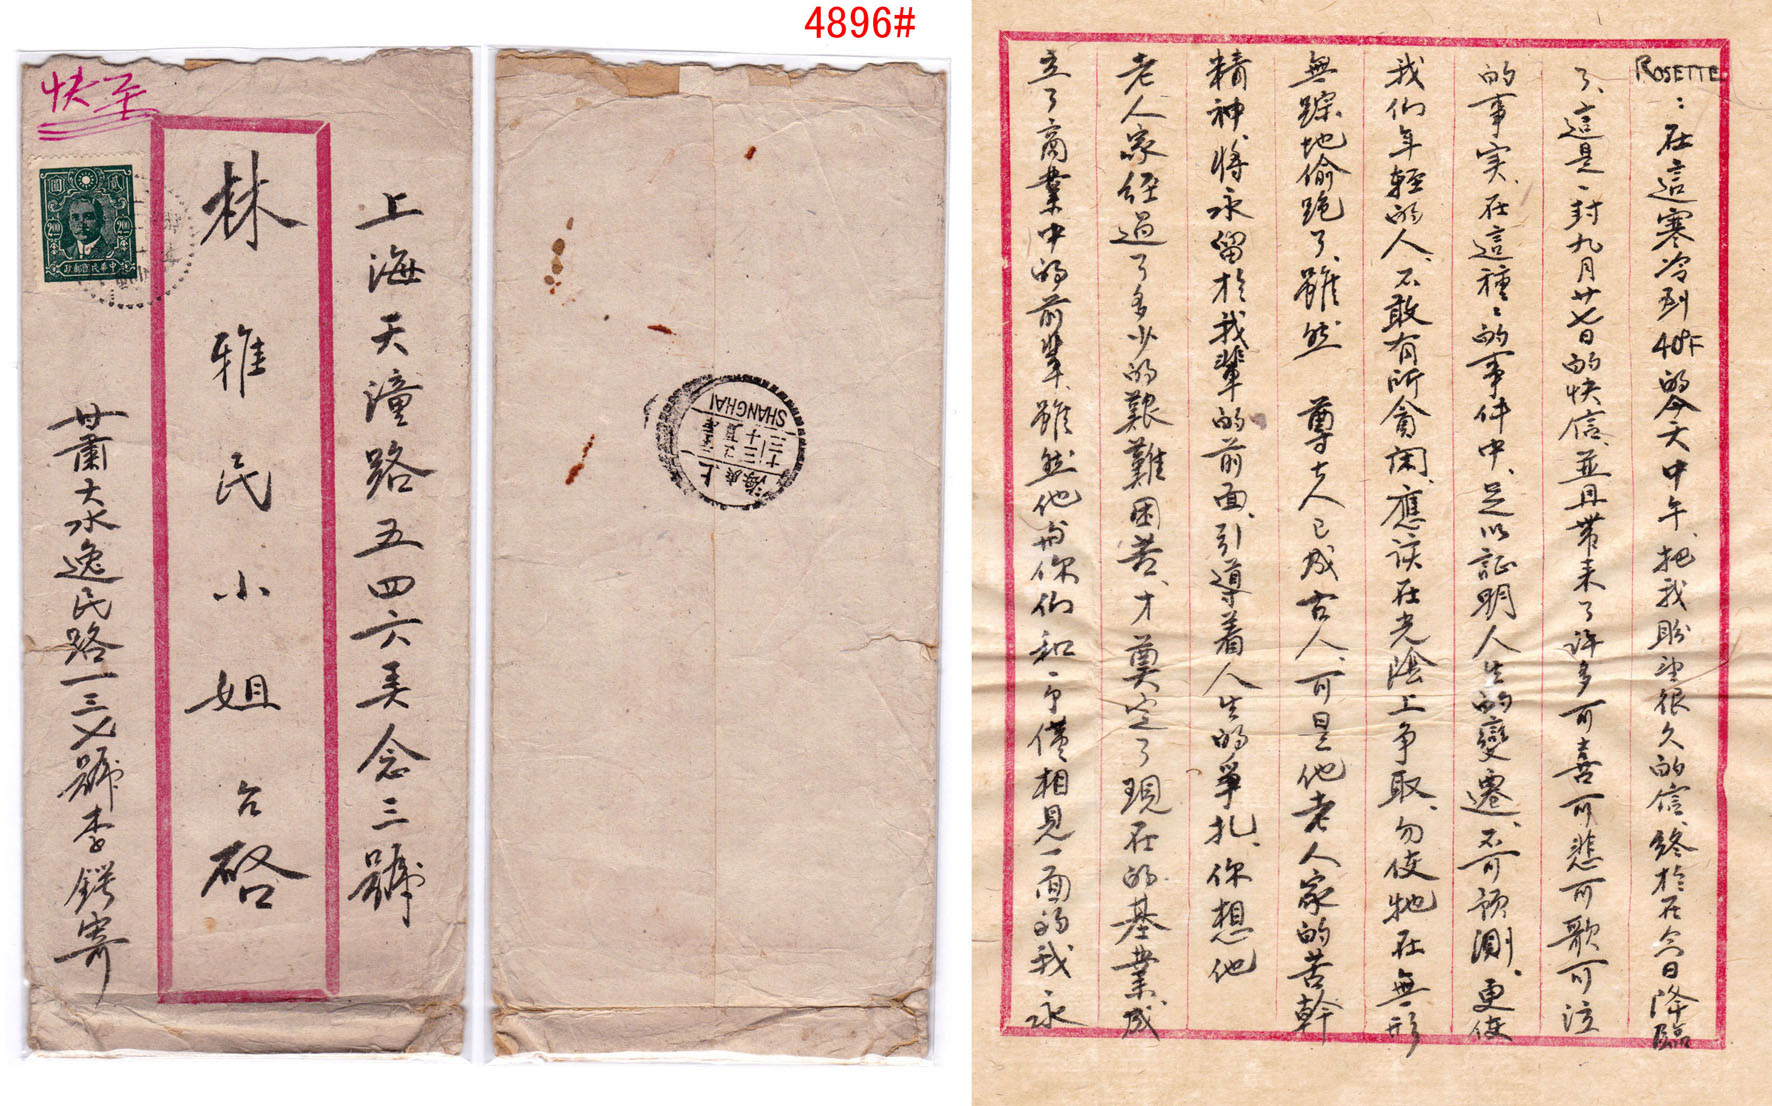 4896#
快至
貳圓
200
200
中華民國郵政
上海天潼路五四六弄念三號
林雅民小姐台啓
甘肅天水逸民路一三七號李鍔寄
上海
SHANGHAI
ROSETTE
：在這寒冷到40°F的今天中午、把我盼望很久的信、終於在今日降臨
了、這是一封九月廿七日的快信、並且帶来了許多可喜可悲可歌可泣
的事实、在這種：的事件中、足以証明人生的變遷、不可預測、更使
我们年輕的人、不敢有所貪閑、應該在光陰上争取、勿使牠在無形
無踪地偷跑了、雖然　尊大人已成古人、可是他老人家的苦幹
精神、將永留於我輩的前面、引導着人生的爭扎、你想他
老人家经過了多少的艱難困苦、才奠定了現在的基業、成
立了商業中的前輩、雖然他与你们和一个僅相見一面的我永